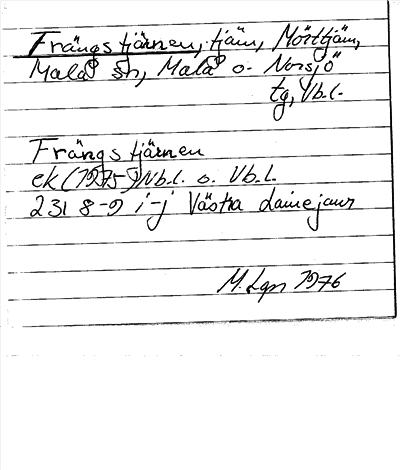 Frängstjärnen, tjärn, Mörttjärn,
Malå sn, Malå o. Norsjö
tg, Vb.l.
Frängstjärnen
ek (1975) Nb.l. o. Vb.l.
231 8-9 i-j Västra Lainejaur
M. Lgn 1976